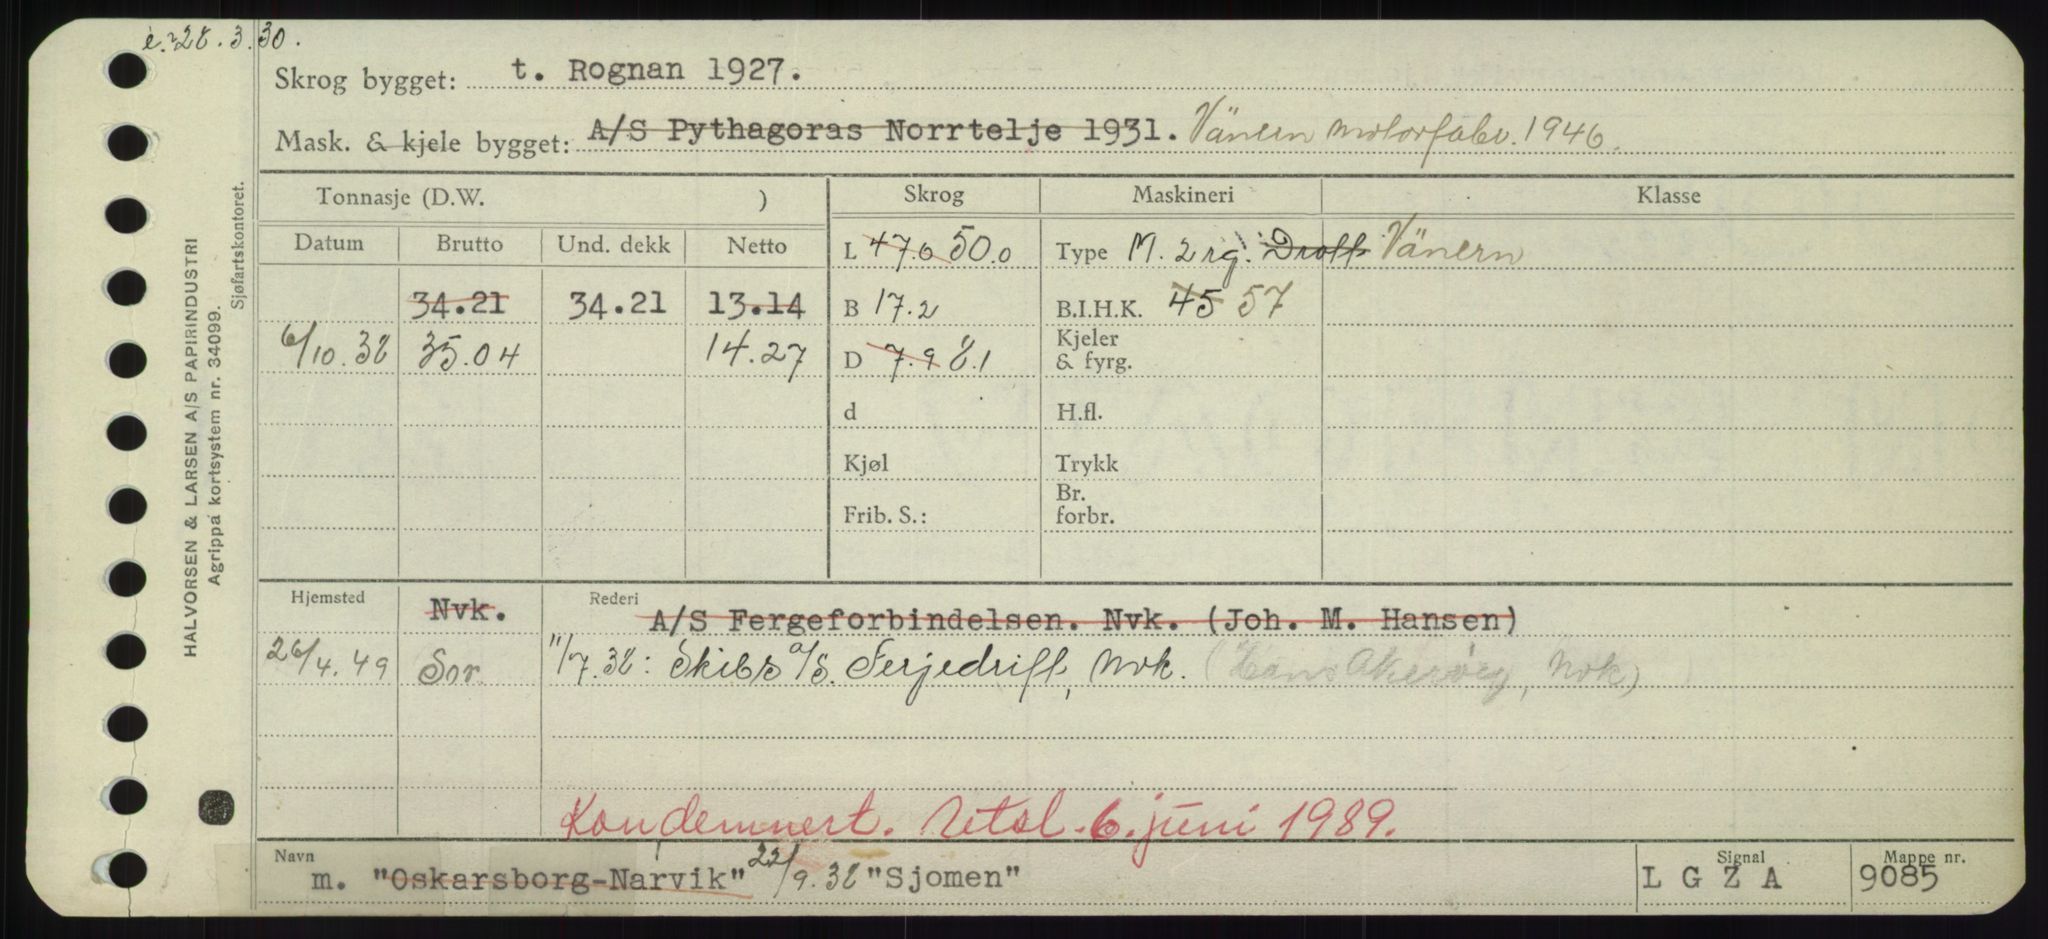 e. 28.3.30.
Skrog bygget: t. Rognan 1927.
Mask. & kjele bygget: A/S Pythagoras Norrtelje 1931. Vänern motorfabr. 1946.
Tonnasje (D.W. ) Skrog Maskineri Klasse
Datum Brutto Und. dekk Netto
L 47.0 50.0 Type M. 2 rg. Drott Vänern
34.21 34.21 13.14 B 17.2 B.I.H.K. 45 57
6/10.38 35.04 14.27 D 7.9 8.1 Kjeler & fyrg.
d H.fl.
Kjøl Trykk
Frib. S.: Br. forbr.
Hjemsted Nvk. Rederi A/S Fergeforbindelsen. Nvk. (Joh. M. Hansen)
26/4.49 Sor 11/7.38: Skibs a/s. Ferjedrift, Nvk. (Hans , Nvk)
Kondemnert. Utsl. 6. juni 1989.
Navn m. "Oskarsborg-Narvik" 22/9.38 "Sjomen" Signal L G Z A Mappe nr. 9085
HALVORSEN & LARSEN A/S PAPIRINDUSTRI
Agrippa kortsystem nr. 34099.
Sjøfartskontoret.